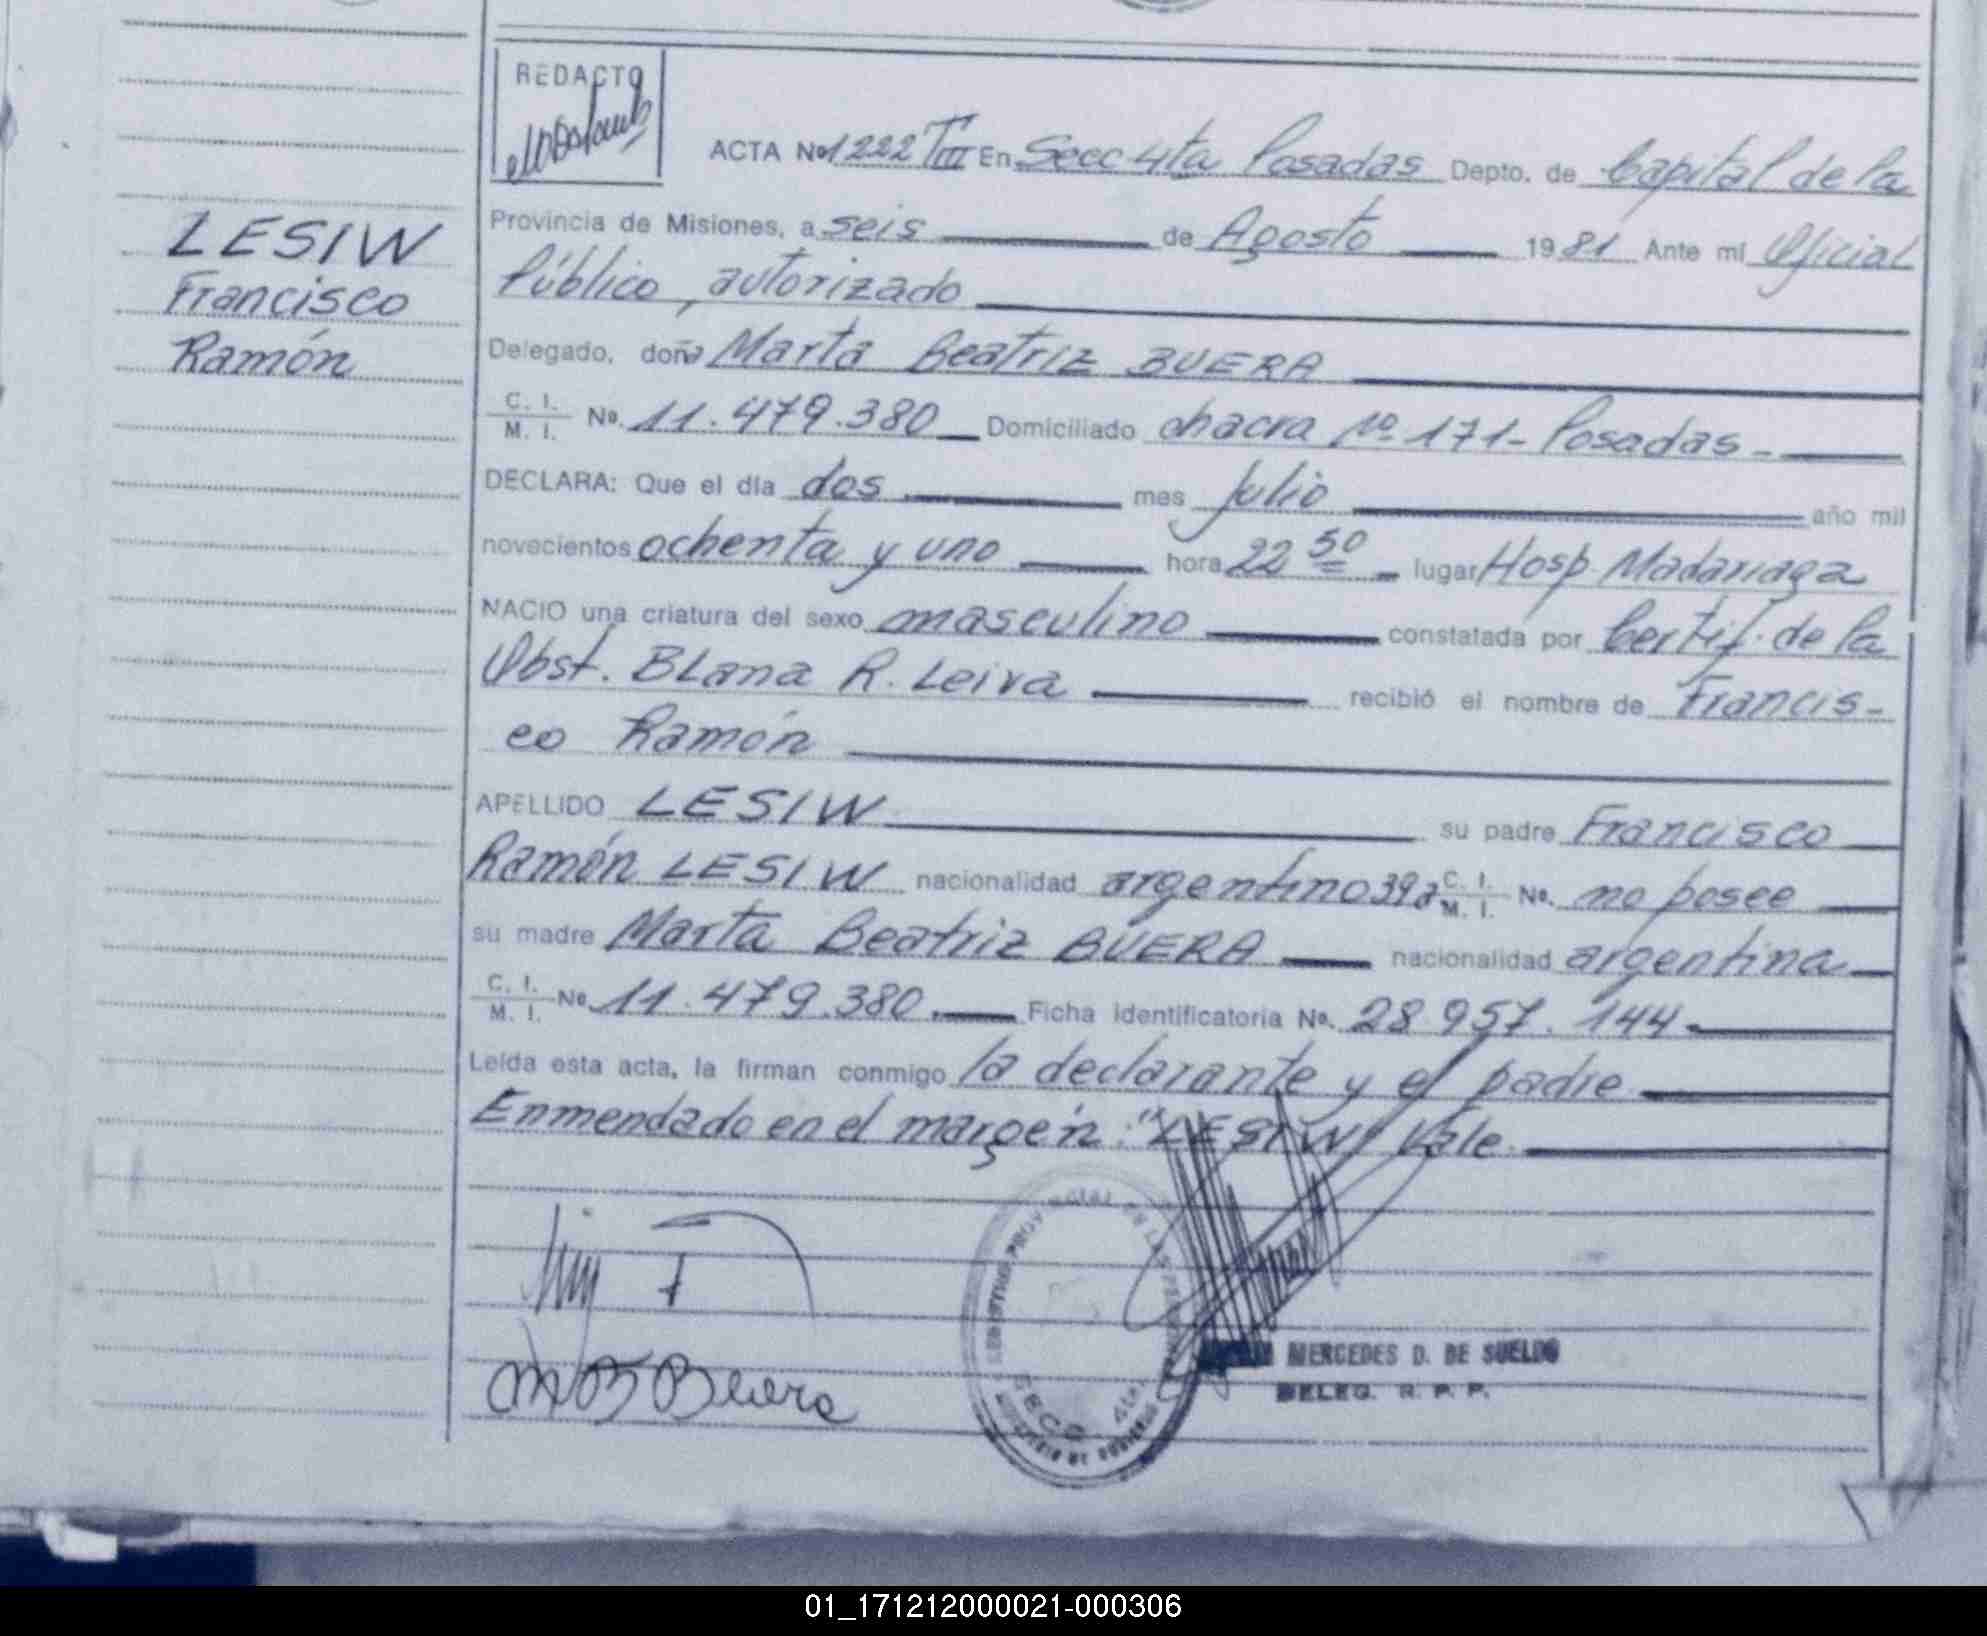 REDACTO
ACTA No 1222 TIII En Secc 4ta Posadas Depto. de Capital de la
LESIW
Francisco
Ramón
Provincia de Misiones, a seis de Agosto 1981 Ante mi Oficial
Público, autorizado
Delegado, doña Marta Beatriz BUERA
C. I. M. I. No. 11.479.380 Domiciliado chacra No 171- Posadas -
DECLARA: Que el día dos mes julio año mil
novecientos ochenta y uno hora 22 50 lugar Hosp. Madariaga
NACIO una criatura del sexo masculino constatada por Certif. de la
Obst. BLana R. Leiva recibió el nombre de Francis-
co Ramón
APELLIDO LESIW su padre Francisco
Ramón LESIW nacionalidad argentino 39a C. I. M. I. No. no posee
su madre Marta Beatriz BUERA nacionalidad argentina
C. I. M. I. No. 11.479.380 Ficha identificatoria No. 28 957.144
Leída esta acta, la firman conmigo la declarante y el padre
Enmendado en el margen: "LESIW" Vale.
M B Buera
MERCEDES D. DE SUELDO
DELEG. R. P. P.
01_171212000021-000306